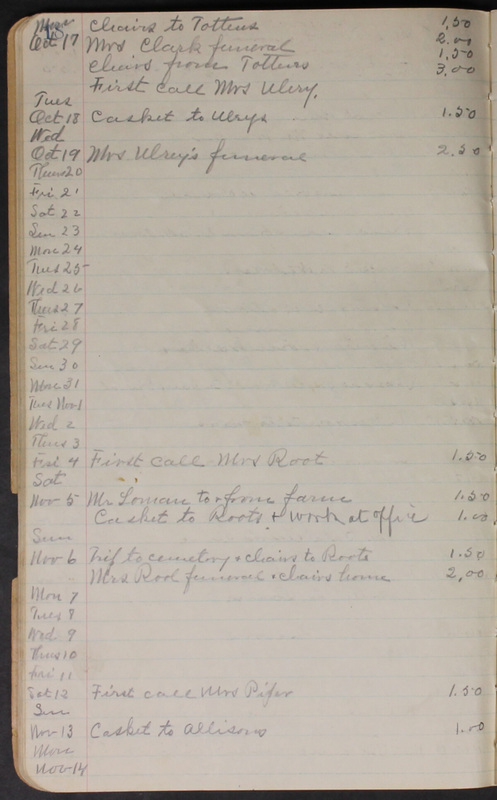 Mon Chairs to Tottens 1.50
Oct 17 Mrs Clark funeral 2.00
Chairs from Tottens 1.50
First call Mrs Ulery. 3.00
Tues
Oct 18 Casket to Ulrys 1.50
Wed
Oct 19 Mrs Ulrey's funeral 2.50
Thurs 20
Fri 21
Sat 22
Sun 23
Mon 24
Tues 25
Wed 26
Thurs 27
Fri 28
Sat 29
Sun 30
Mon 31
Tues Nov 1
Wed 2
Thurs 3
Fri 4 First call Mrs Root 1.50
Sat
Nov 5 Mr Loman to + from farm 1.50
Casket to Roots + work at office 1.00
Sun
Nov 6 Trip to cemetery + chairs to Roots 1.50
Mrs Root funeral + chairs home 2,00
Mon 7
Tues 8
Wed 9
Thurs 10
Fri 11
Sat 12 First call Mrs Pifer 1.50
Sun
Nov 13 Casket to Allisons 1.00
Mon
Nov 14